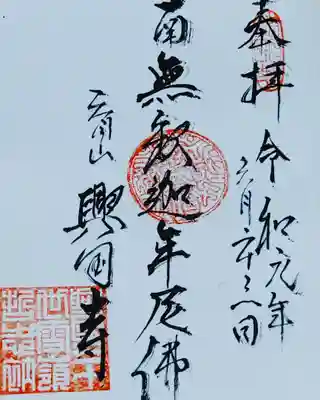 奉拝 令和元年
六月二十三日
南無釈迦牟尼佛
天目山 興国寺